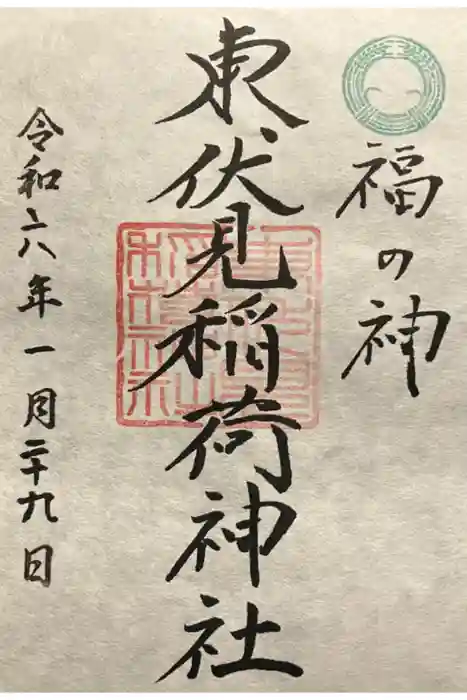 福の神
東伏見稲荷神社
令和六年一月二十九日